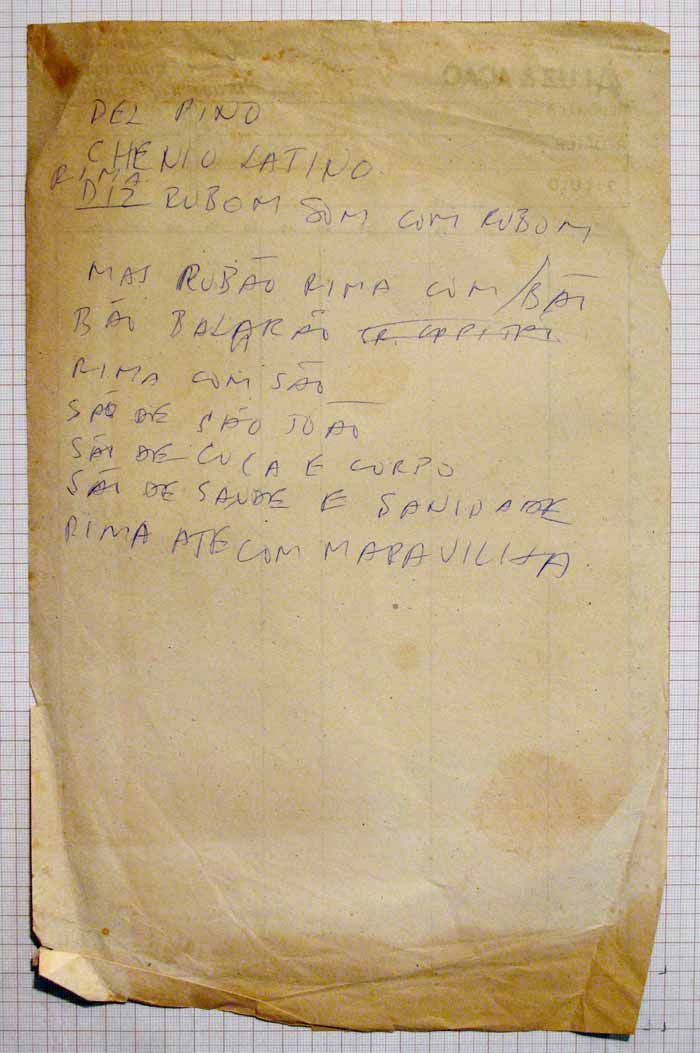 DEL PINO
CHENIO LATINO
RIMA
DIZ RUBOM SOM COM RUBOM
MAS RUBÃO RIMA COM BÃO
BÃO BALALÃO
RIMA COM SÃO
SÃO DE SÃO JOÃO
SÃO DE CUCA E CORPO
SÃO DE SAUDE E SANIDADE
RIMA ATE COM MARAVILHA